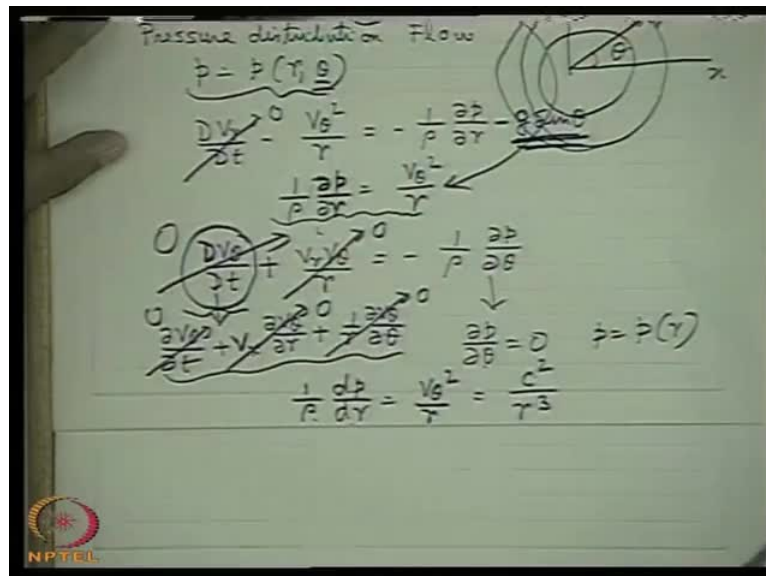 Pressure distribution Flow
p = p(r, θ)
r
θ
x
DVr/Dt → 0 - Vθ²/r = - 1/ρ ∂p/∂r - g sinθ
1/ρ ∂p/∂r = Vθ²/r
0 DVθ/Dt + VrVθ/r → 0 = - 1/ρ ∂p/∂θ
0 ∂Vθ/∂t + Vr ∂Vθ/∂r → 0 + 1/r ∂Vθ/∂θ → 0 ∂p/∂θ = 0 p = p(r)
1/ρ dp/dr = Vθ²/r = c²/r³
NPTEL